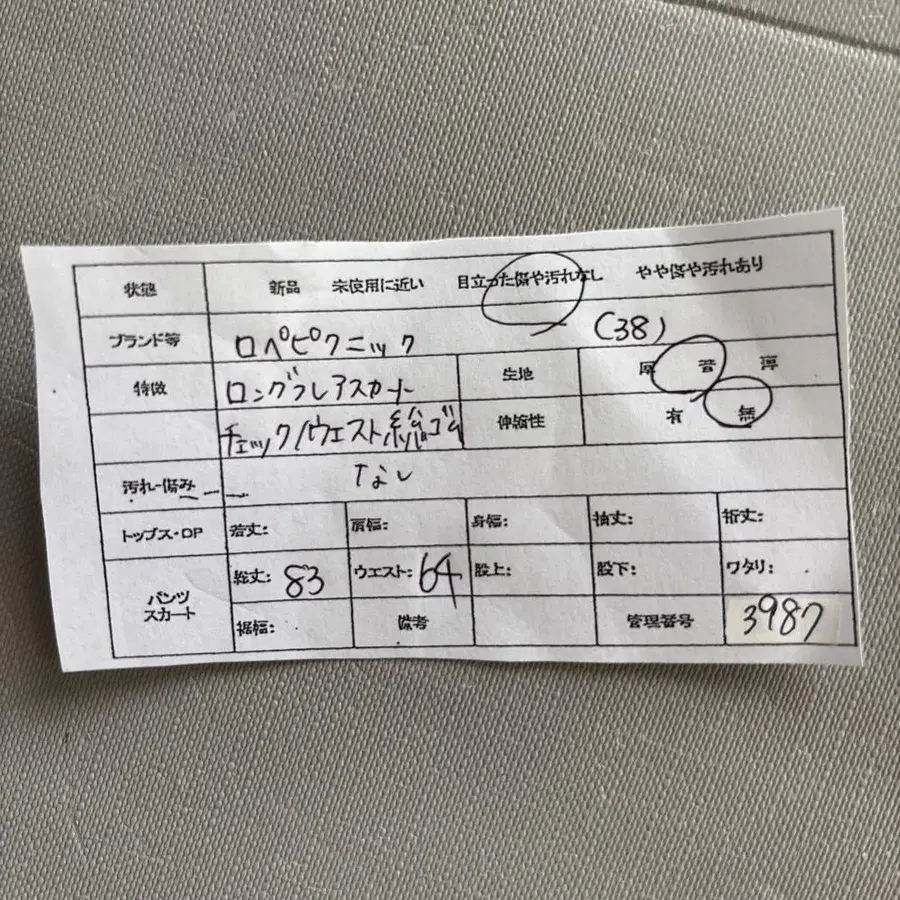 状態 新品 未使用に近い 目立った傷や汚れなし やや傷や汚れあり
ブランド等 ロペピクニック (38)
特徴 ロングフレアスカート 生地 厚 普 薄
チェック/ウエスト総ゴム 伸縮性 有 無
汚れ・傷み なし
トップス・OP 着丈: 肩幅: 身幅: 袖丈: 裄丈:
パンツ スカート 総丈: 83 ウエスト: 64 股上: 股下: ワタリ:
裾幅: 備考 管理番号 3987